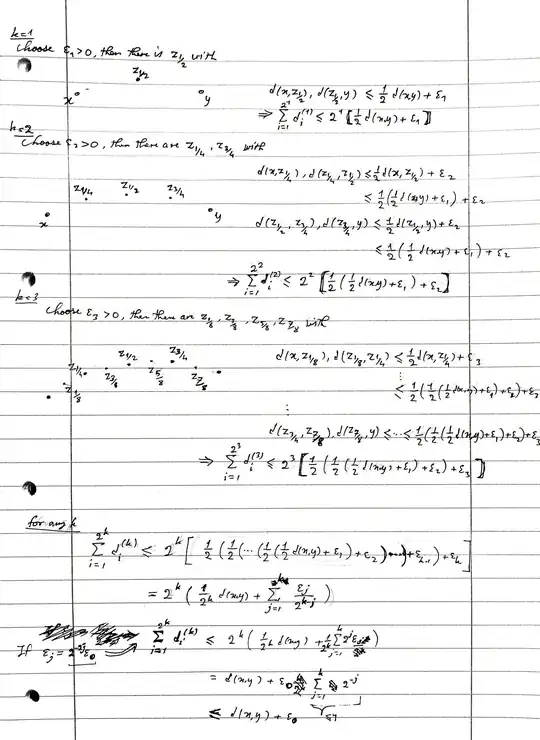 k=1
Choose ε₁>0, then there is z_{1/2} with
z_{1/2}
x y
d(x,z_{1/2}), d(z_{1/2},y) ≤ 1/2 d(x,y) + ε₁
⇒ ∑_{i=1}^{2^1} d_i^{(1)} ≤ 2^1 [1/2 d(x,y) + ε₁]
k=2
Choose ε₂>0, then there are z_{1/4}, z_{3/4} with
d(x,z_{1/4}), d(z_{1/4},z_{1/2}) ≤ 1/2 d(x,z_{1/2}) + ε₂
z_{1/4} z_{1/2} z_{3/4}
≤ 1/2 (1/2 d(x,y) + ε₁) + ε₂
x y
d(z_{1/2},z_{3/4}), d(z_{3/4},y) ≤ 1/2 d(z_{1/2},y) + ε₂
≤ 1/2 (1/2 d(x,y) + ε₁) + ε₂
⇒ ∑_{i=1}^{2^2} d_i^{(2)} ≤ 2^2 [1/2 (1/2 d(x,y) + ε₁) + ε₂]
k=3
Choose ε₃>0, then there are z_{1/8}, z_{3/8}, z_{5/8}, z_{7/8} with
z_{1/4} z_{1/2} z_{3/4}
d(x,z_{1/8}), d(z_{1/8},z_{1/4}) ≤ 1/2 d(x,z_{1/4}) + ε₃
z_{1/8} z_{3/8} z_{5/8} z_{7/8}
⋮
≤ 1/2 (1/2 (1/2 d(x,y) + ε₁) + ε₂) + ε₃
⋮
d(z_{3/4},z_{7/8}), d(z_{7/8},y) ≤ ... ≤ 1/2 (1/2 (1/2 d(x,y) + ε₁) + ε₂) + ε₃
⇒ ∑_{i=1}^{2^3} d_i^{(3)} ≤ 2^3 [1/2 (1/2 (1/2 d(x,y) + ε₁) + ε₂) + ε₃]
for any k
∑_{i=1}^{2^k} d_i^{(k)} ≤ 2^k [1/2 (1/2 (... (1/2 (1/2 d(x,y) + ε₁) + ε₂) ...) + ε_{k-1}) + ε_k]
= 2^k (1/2^k d(x,y) + ∑_{j=1}^{k} ε_j / 2^{k-j})
If ε_j = 2^{-2j} ε₀ ∑_{i=1}^{2^k} d_i^{(k)} ≤ 2^k (1/2^k d(x,y) + 1/2^k ∑_{j=1}^{k} 2^j ε_j)
= d(x,y) + ε₀ ∑_{j=1}^{k} 2^{-j}
≤1
≤ d(x,y) + ε₀